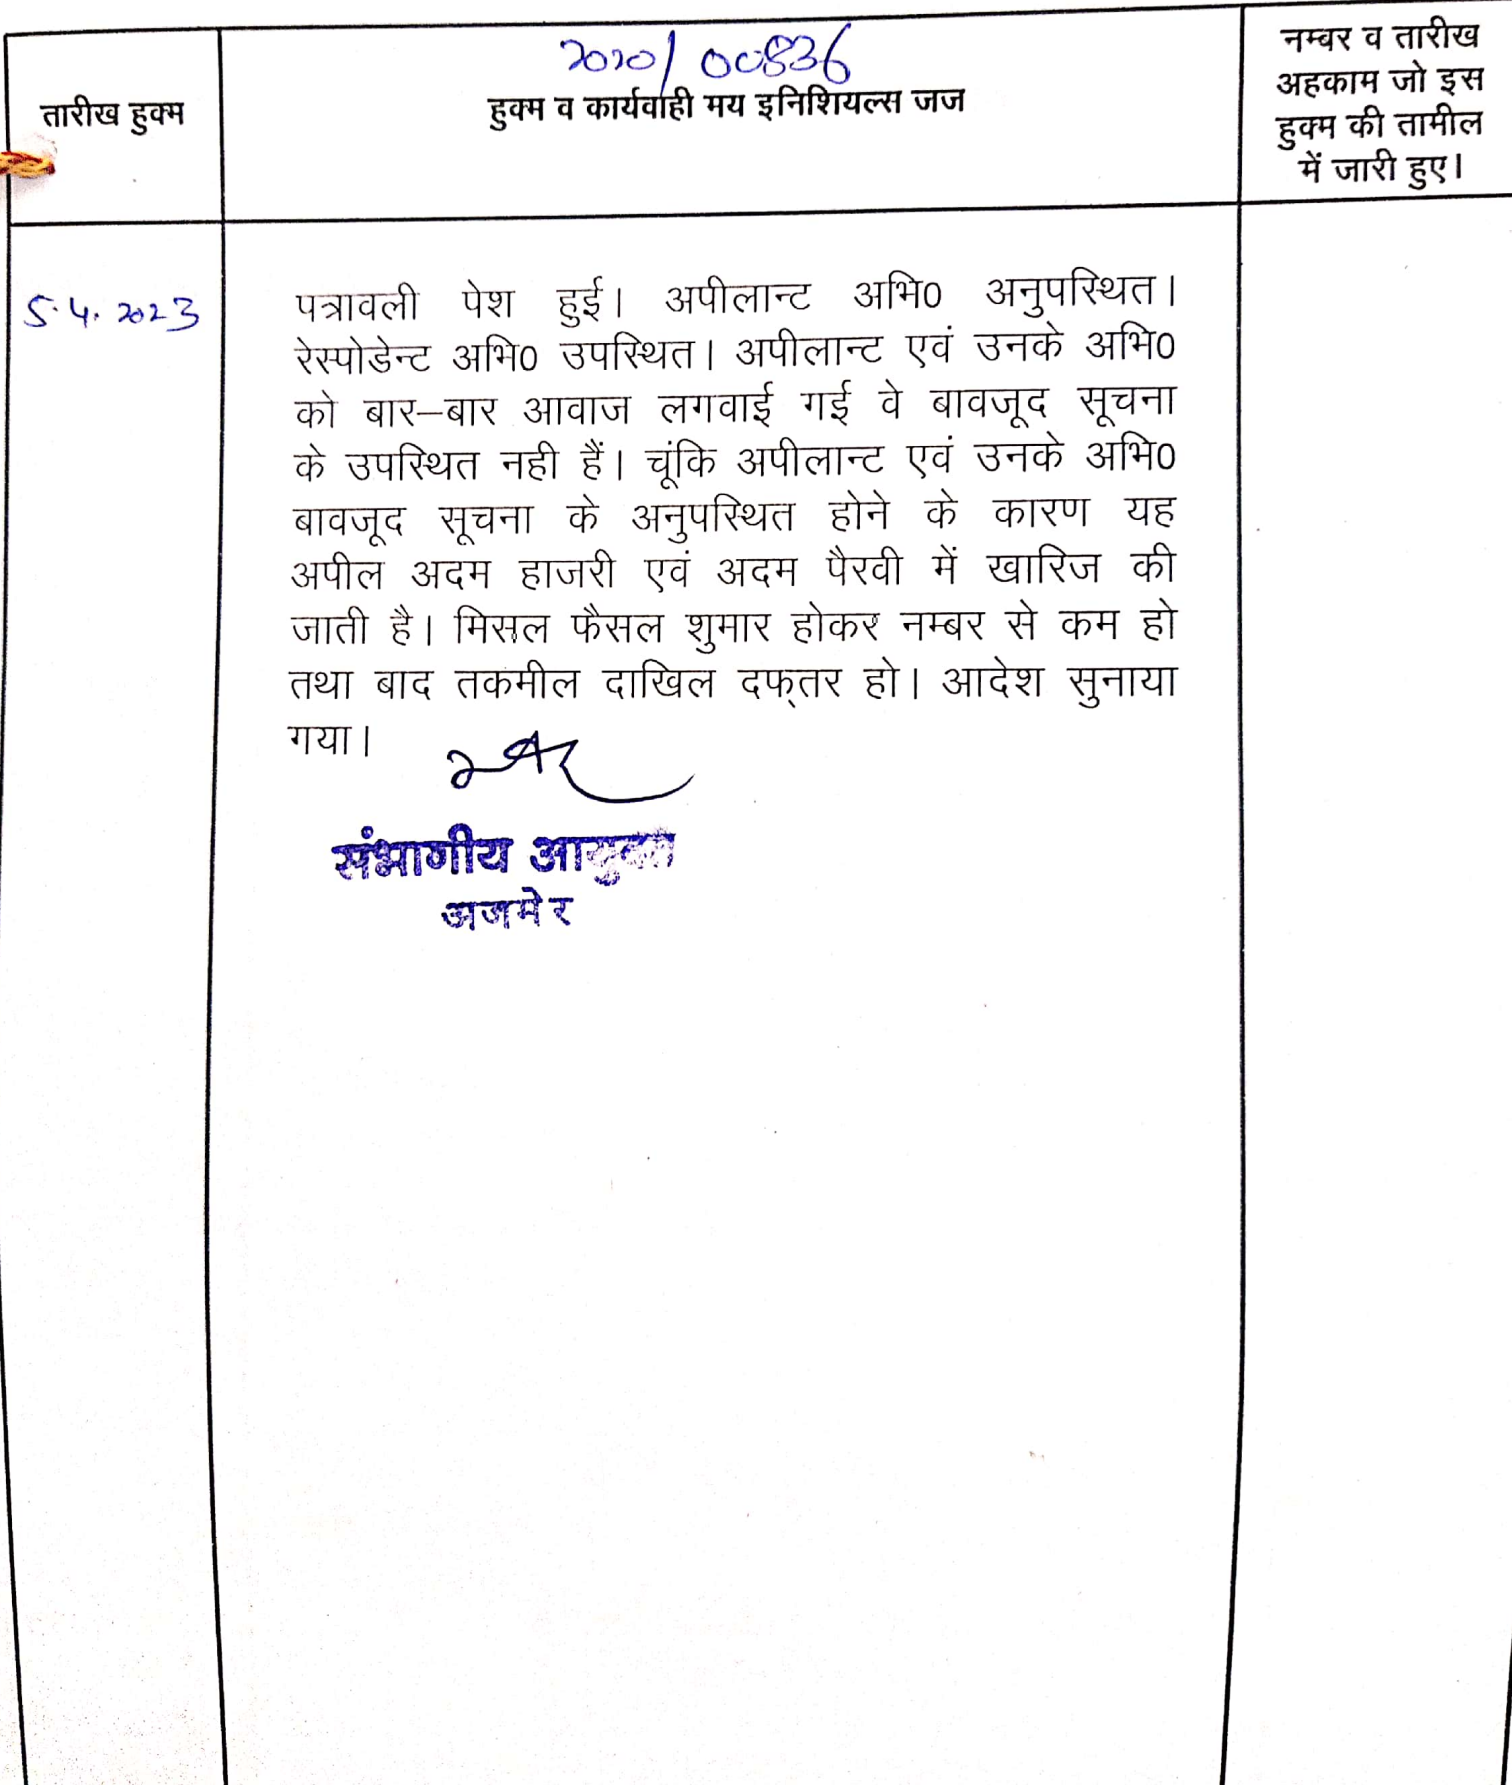 2020/00836
तारीख हुक्म
हुक्म व कार्यवाही मय इनिशियल्स जज
नम्बर व तारीख
अहकाम जो इस
हुक्म की तामील
में जारी हुए।
5.4.2023
पत्रावली पेश हुई। अपीलान्ट अभि0 अनुपस्थित।
रेस्पोडेन्ट अभि0 उपस्थित। अपीलान्ट एवं उनके अभि0
को बार–बार आवाज लगवाई गई वे बावजूद सूचना
के उपस्थित नही हैं। चूंकि अपीलान्ट एवं उनके अभि0
बावजूद सूचना के अनुपस्थित होने के कारण यह
अपील अदम हाजरी एवं अदम पैरवी में खारिज की
जाती है। मिसल फैसल शुमार होकर नम्बर से कम हो
तथा बाद तकमील दाखिल दफ्तर हो। आदेश सुनाया
गया।
संभागीय आयुक्त
अजमेर